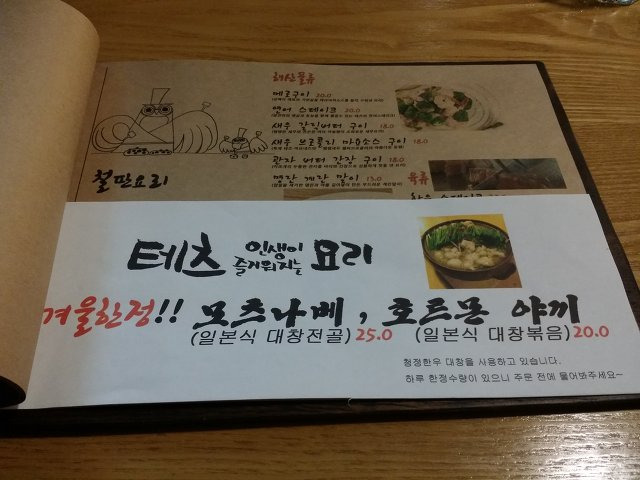 해산물류
메로구이 20.0
연어 스테이크 20.0
새우 갈릭버터 구이 18.0
새우 브로콜리 마요소스 구이 18.0
관자 버터 간장 구이 18.0
명란 계란 말이 13.0
철판요리
육류
테츠 인생이 즐거워지는 요리
겨울한정!! 모츠나베, 호르몬 야끼
(일본식 대창전골) 25.0 (일본식 대창볶음) 20.0
청정한우 대창을 사용하고 있습니다.
하루 한정수량이 있으니 주문 전에 물어봐주세요~